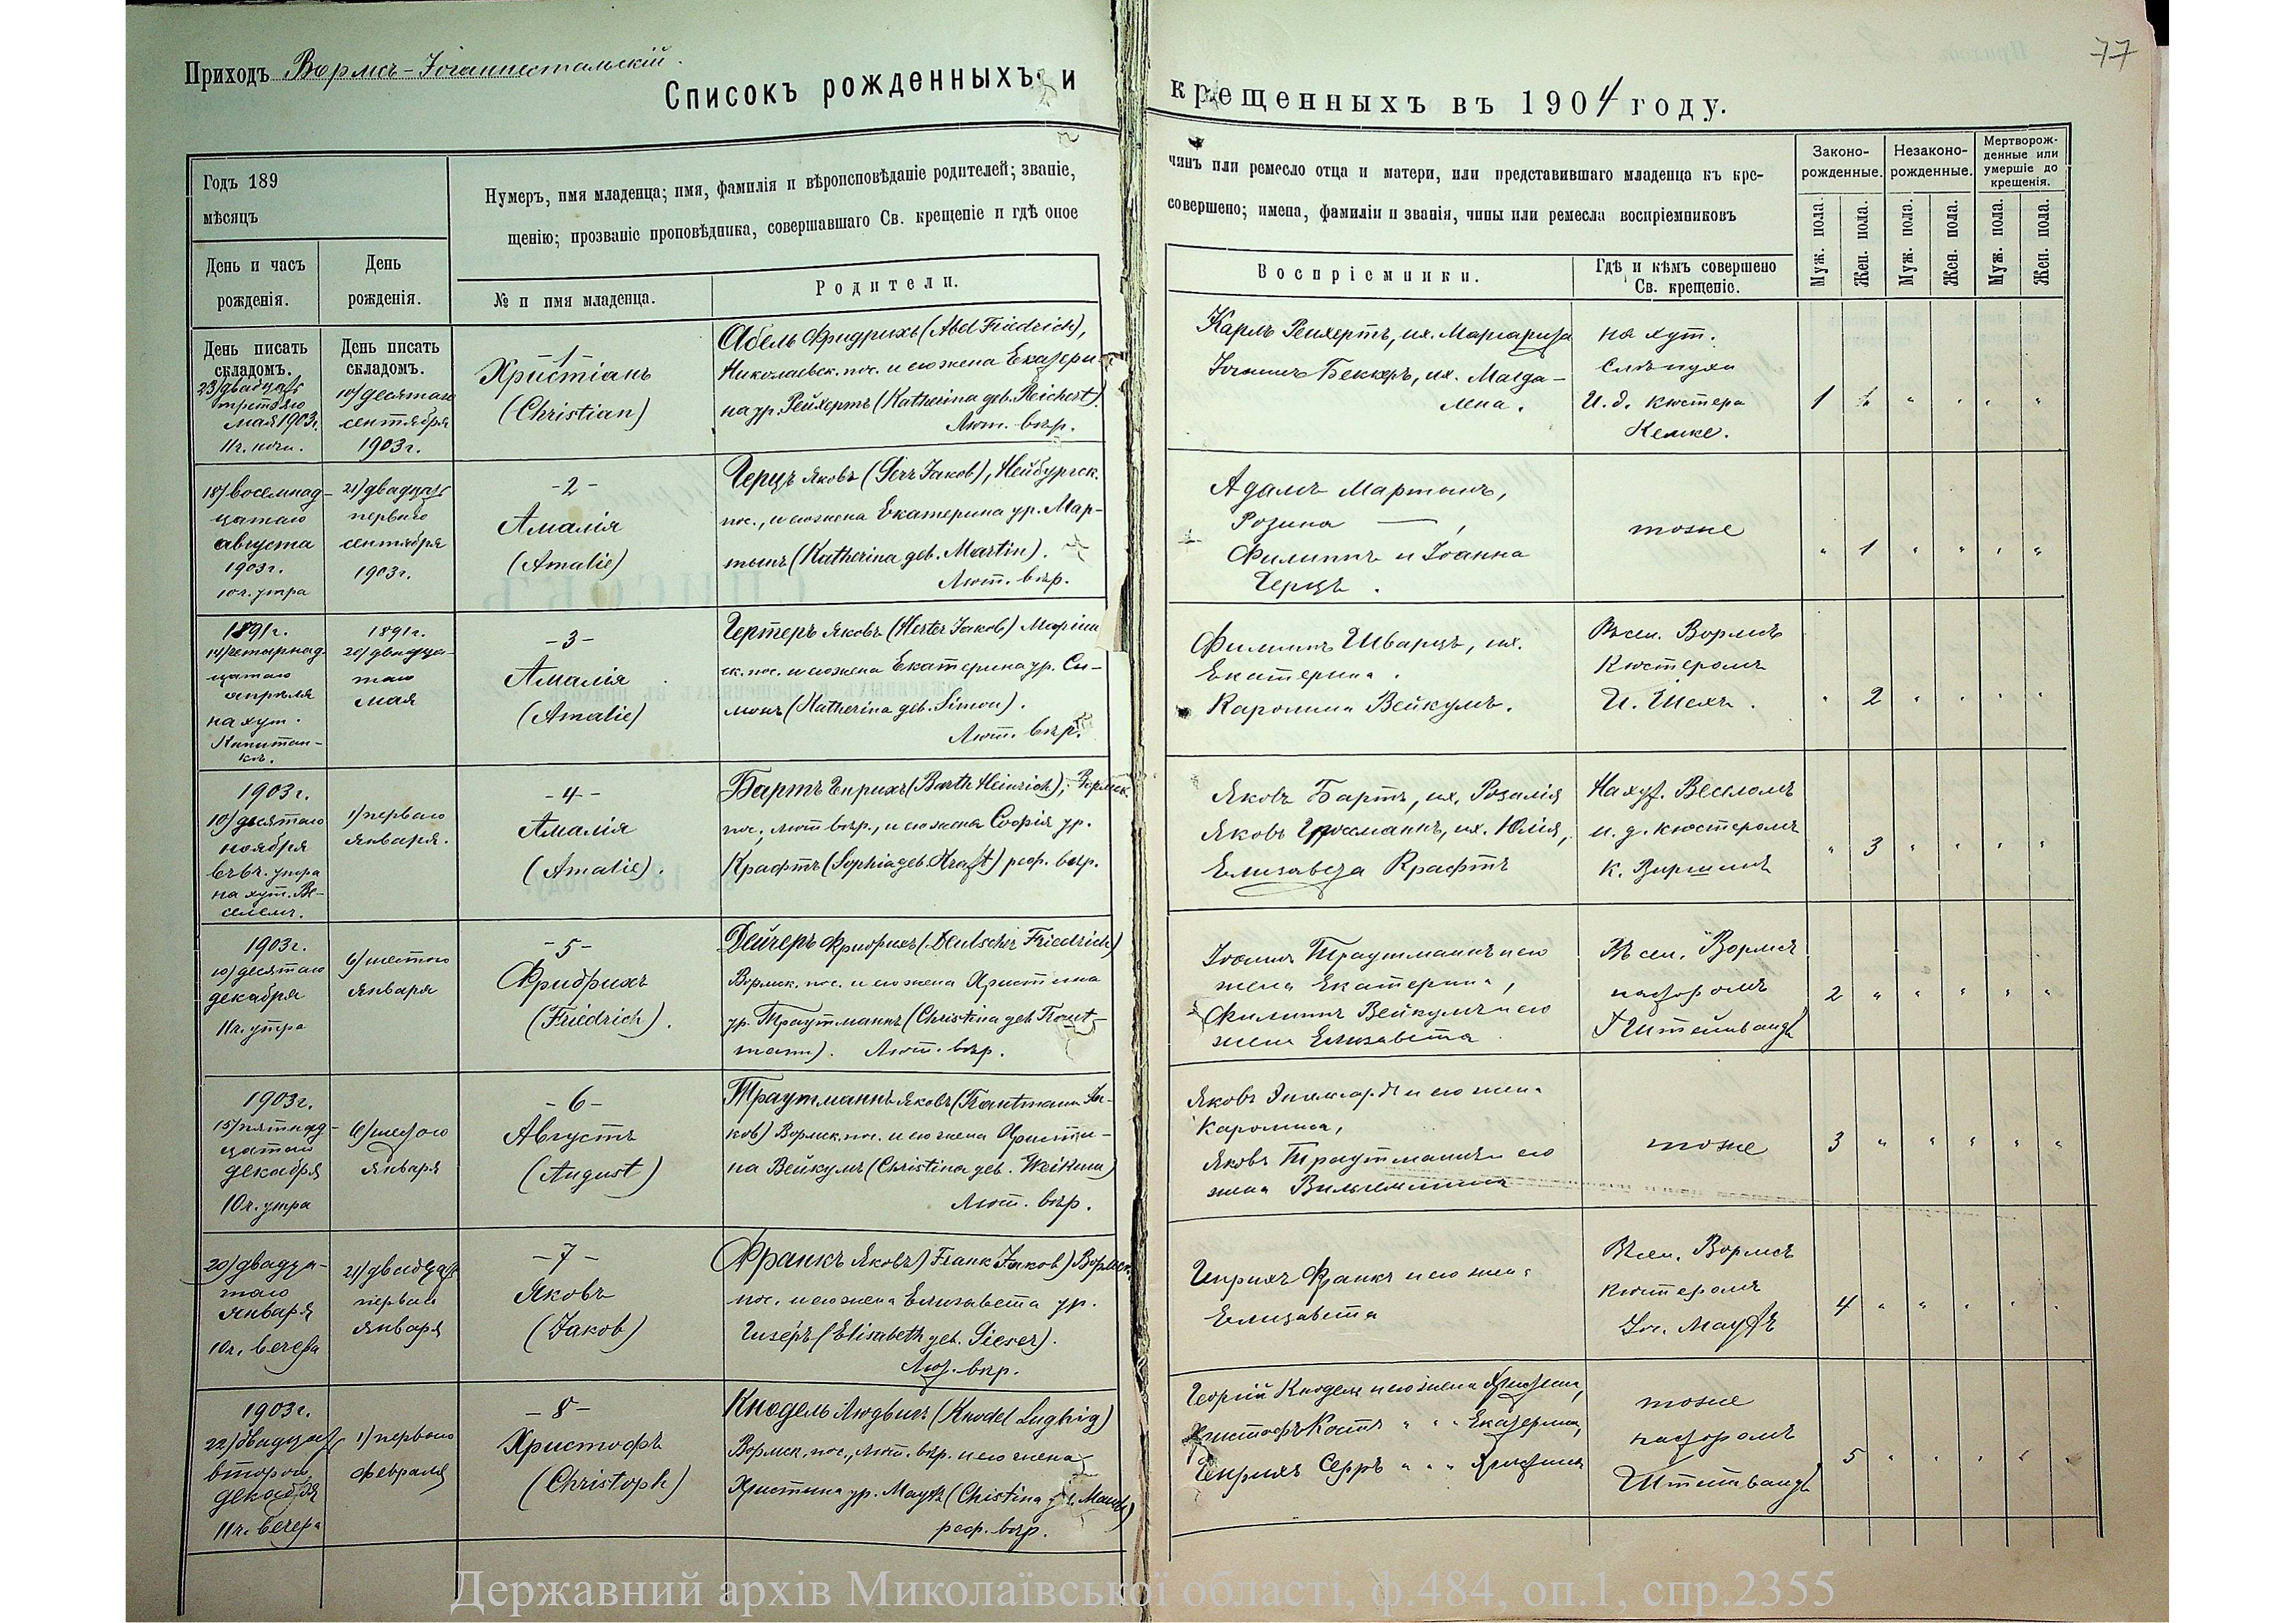 Приходъ Вормсъ-Іоганнестальскій.
77
Списокъ рожденныхъ и крещенныхъ въ 1904 году.
Годъ 189
мѣсяцъ
Нумеръ, имя младенца; имя, фамилія и вѣроисповѣданіе родителей; званіе,
чинъ или ремесло отца и матери, или представившаго младенца къ кре-
щенію; прозваніе проповѣдника, совершавшаго Св. крещеніе и гдѣ оное
совершено; имена, фамиліи и званія, чины или ремесла воспріемниковъ
Законо-
рожденные.
Незаконо-
рожденные.
Мертворож-
денные или
умершіе до
крещенія.
День и часъ
рожденія.
День
рожденія.
№ и имя младенца.
Родители.
Воспріемники.
Гдѣ и кѣмъ совершено
Св. крещеніе.
Муж. пола.
Жен. пола.
Муж. пола.
Жен. пола.
Муж. пола.
Жен. пола.
День писать
складомъ.
23/двадцать
третьяго
мая 1903 г.
11 ч. ночи.
День писать
складомъ.
10/десятаго
сентября
1903 г.
-1-
Христіанъ
(Christian)
Абель Фридрихъ (Abel Friedrich),
Николаевск. пос. и его жена Екатери-
на ур. Рейхертъ (Katherina geb. Reichert).
Лют. вѣр.
Карлъ Рейхертъ, их. Маргарита
Іоганнъ Беккеръ, их. Магда-
лена.
на хут.
Слѣпухи
И. д. кюстера
Кемке.
1 " " " "
18/восемнад-
цатаго
августа
1903 г.
10 ч. утра
21/двадцать
перваго
сентября
1903 г.
-2-
Амалія
(Amalie)
Герцъ Яковъ (Herz Jakob), Нейбургск.
пос., и его жена Екатерина ур. Мар-
тинъ (Katherina geb. Martin).
Лют. вѣр.
Адамъ Мартинъ,
Розина — ,
Филиппъ и Іоанна
Герцъ.
тоже
" 1 " " " "
1891 г.
14/четырнад-
цатаго
апрѣля
на хут.
Капитан-
кѣ.
1891 г.
20/двадца-
таго
мая
-3-
Амалія
(Amalie)
Гертеръ Яковъ (Herter Jakob) Маріин
ск. пос. и его жена Екатерина ур. Си-
монъ (Katherina geb. Simon).
Лют. вѣр.
Филиппъ Шварцъ, их.
Екатерина.
Каролина Вейкумъ.
Въ сел. Вормсъ
Кюстеромъ
И. Шехъ.
" 2 " " " "
1903 г.
10/десятаго
ноября
въ 6 ч. утра
на хут. Ве-
селемъ.
1/перваго
января.
-4-
Амалія
(Amalie).
Бартъ Генрихъ (Barth Heinrich), Вормск.
пос., лют. вѣр., и его жена Софія ур.
Крафтъ (Sophia geb. Kraft) реф. вѣр.
Яковъ Бартъ, их. Розалія
Яковъ Гроссманнъ, их. Юлія,
Елизавета Крафтъ
На хут. Веселомъ
и. д. кюстеромъ
" 3 " " " "
1903 г.
10/десятаго
декабря
11 ч. утра
6/шестого
января
-5-
Фридрихъ
(Friedrich).
Дейчеръ Фридрихъ (Deutscher Friedrich)
Вормск. пос. и его жена Христина
ур. Траутманнъ (Christina geb. Traut-
mann). Лют. вѣр.
Іоганнъ Траутманнъ и его
жена Екатерина,
Филиппъ Вейкумъ и его
жена Елизавета
Въ сел. Вормсъ
пасторомъ
Штейнвандъ
2 " " " " "
1903 г.
15/пятнад-
цатаго
декабря
10 ч. утра
6/шестого
января
-6-
Августъ
(August)
Траутманнъ Яковъ (Trautmann Ja-
kob) Вормск. пос. и его жена Христи-
на Вейкумъ (Christina geb. Weikum)
Лют. вѣр.
Яковъ и его жена
Каролина,
Яковъ Траутманнъ и его
жена Вильгельмина
тоже
3 " " " " "
20/двадца-
таго
января
10 ч. вечера
21/двадцать
перваго
января
-7-
Яковъ
(Jakob)
Франкъ Яковъ (Frank Jakob) Вормск.
пос. и его жена Елизавета ур.
Гизеръ (Elisabeth geb. Gieser).
Лют. вѣр.
Генрихъ Франкъ и его жена
Елизавета
Въ сел. Вормсъ
Кюстеромъ
Іог. Маутъ
4 " " " " "
1903 г.
22/двадцать
второго
декабря
11 ч. вечера
1/перваго
февраля
-8-
Христофъ
(Christoph)
Кнодель Людвигъ (Knodel Ludwig)
Вормск. пос., лют. вѣр. и его жена
Христина ур. Маутъ (Chistina geb. Mauth)
реф. вѣр.
Георгій Кнодель и его жена Христина,
Христофъ Костъ " " " Екатерина,
Генрихъ Серръ " " " Христина
тоже
пасторомъ
Штейнвандъ
5 " " " " "
Державний архів Миколаївської області, ф.484, оп.1, спр.2355